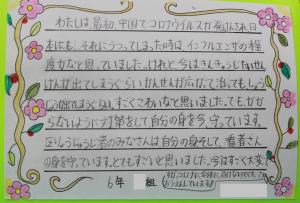 わたしは、最初、中国でコロナウイルスが発けんされ、日
本にも、それにうつってしまった時は、インフルエンザの程
度かなと思っていました。けれど、今はきんきゅうじたいせん
けんが出てしまうぐらいかんせんが広がって治してもし
が出てしまうくらい、すごくこわいなと思いました。でも、かか
らないように対策をして自分の身を今、守っています。
いりょうじゅうじ者のみなさんは自分の身そして、患者さん
の身を守っています。とてもすごいと思いました。今はすごく大変
6年 組